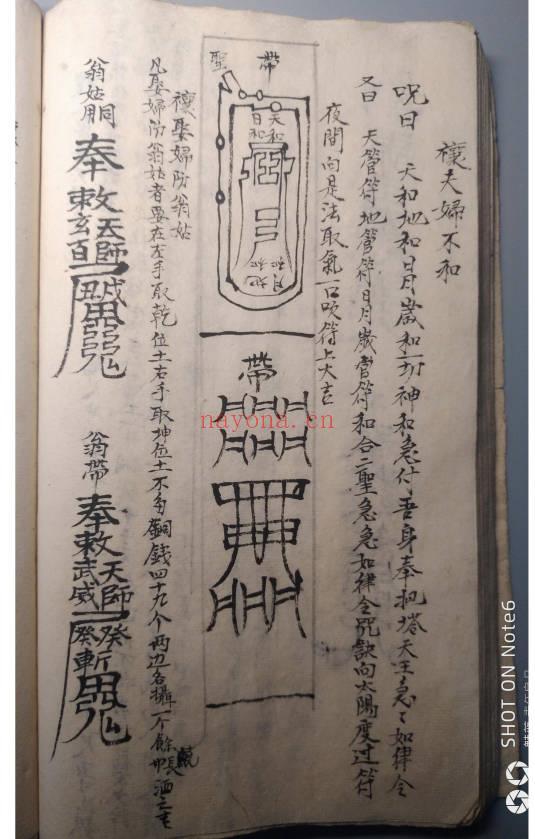 禳夫婦不和
咒曰 天和地和日月歲和一切神和急付吾身奉托塔天王急〻如律令
又曰 天管符地管符日月歲當符和合二聖急急如律令咒訣向太陽度过符
夜間向是法取氣一口吹符上大吉
聖 帶
天和
日和
地和
月和
帶
禳娶婦防翁姑
凡娶婦防翁姑者要在左手取乾位土右手取坤位土不多銅錢四十九个两边各攝一个餘
翁姑用
奉敕
天師
玄百
翁帶
奉敕
天師
武威
癸
癸斬
nayona.cn
SHOT ON Note6